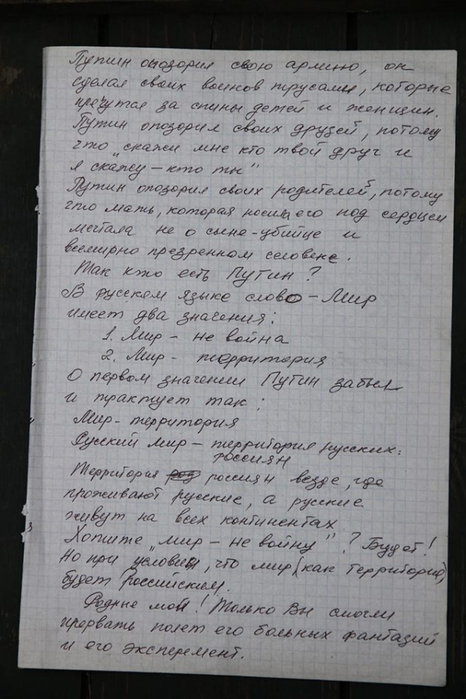 Путин опозорил свою армию, он
сделал своих воинов трусами, которые
прячутся за спины детей и женщин.
Путин опозорил своих друзей, потому
что "скажи мне кто твой друг и
я скажу – кто ты"
Путин опозорил своих родителей, потому
что мать, которая носила его под сердцем
мечтала не о сыне-убийце и
всемирно презренном человеке.
Так кто есть Путин?
В русском языке слово – Мир
имеет два значения:
1. Мир – не война
2. Мир – территория
О первом значении Путин забыл
и трактует так:
Мир – территория
Русский мир – территория русских.
россиян
Территория россиян везде, где
проживают русские, а русские
живут на всех континентах
Хотите "мир – не войну"? Будет!
Но при условии, что мир (как территория)
будет Российским.
Родные мои! Только Вы смогли
прервать полет его больных фантазий
и его эксперемент.